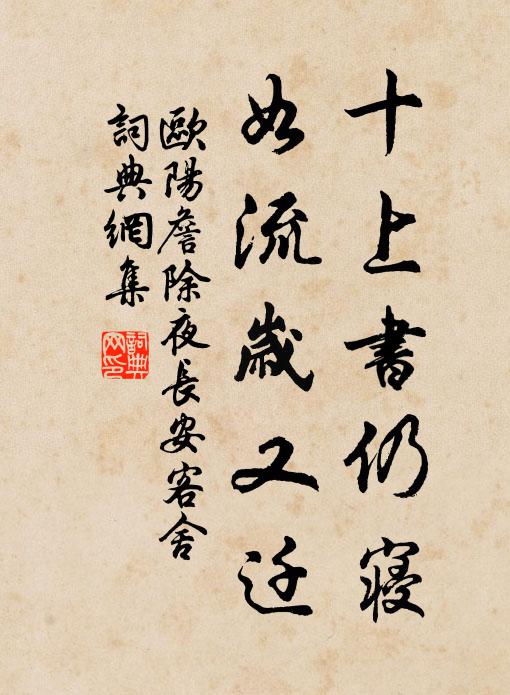 十上書仍寢
如流歲又迁
歐陽詹除夜長安客舍
詞典網集
詞典網印